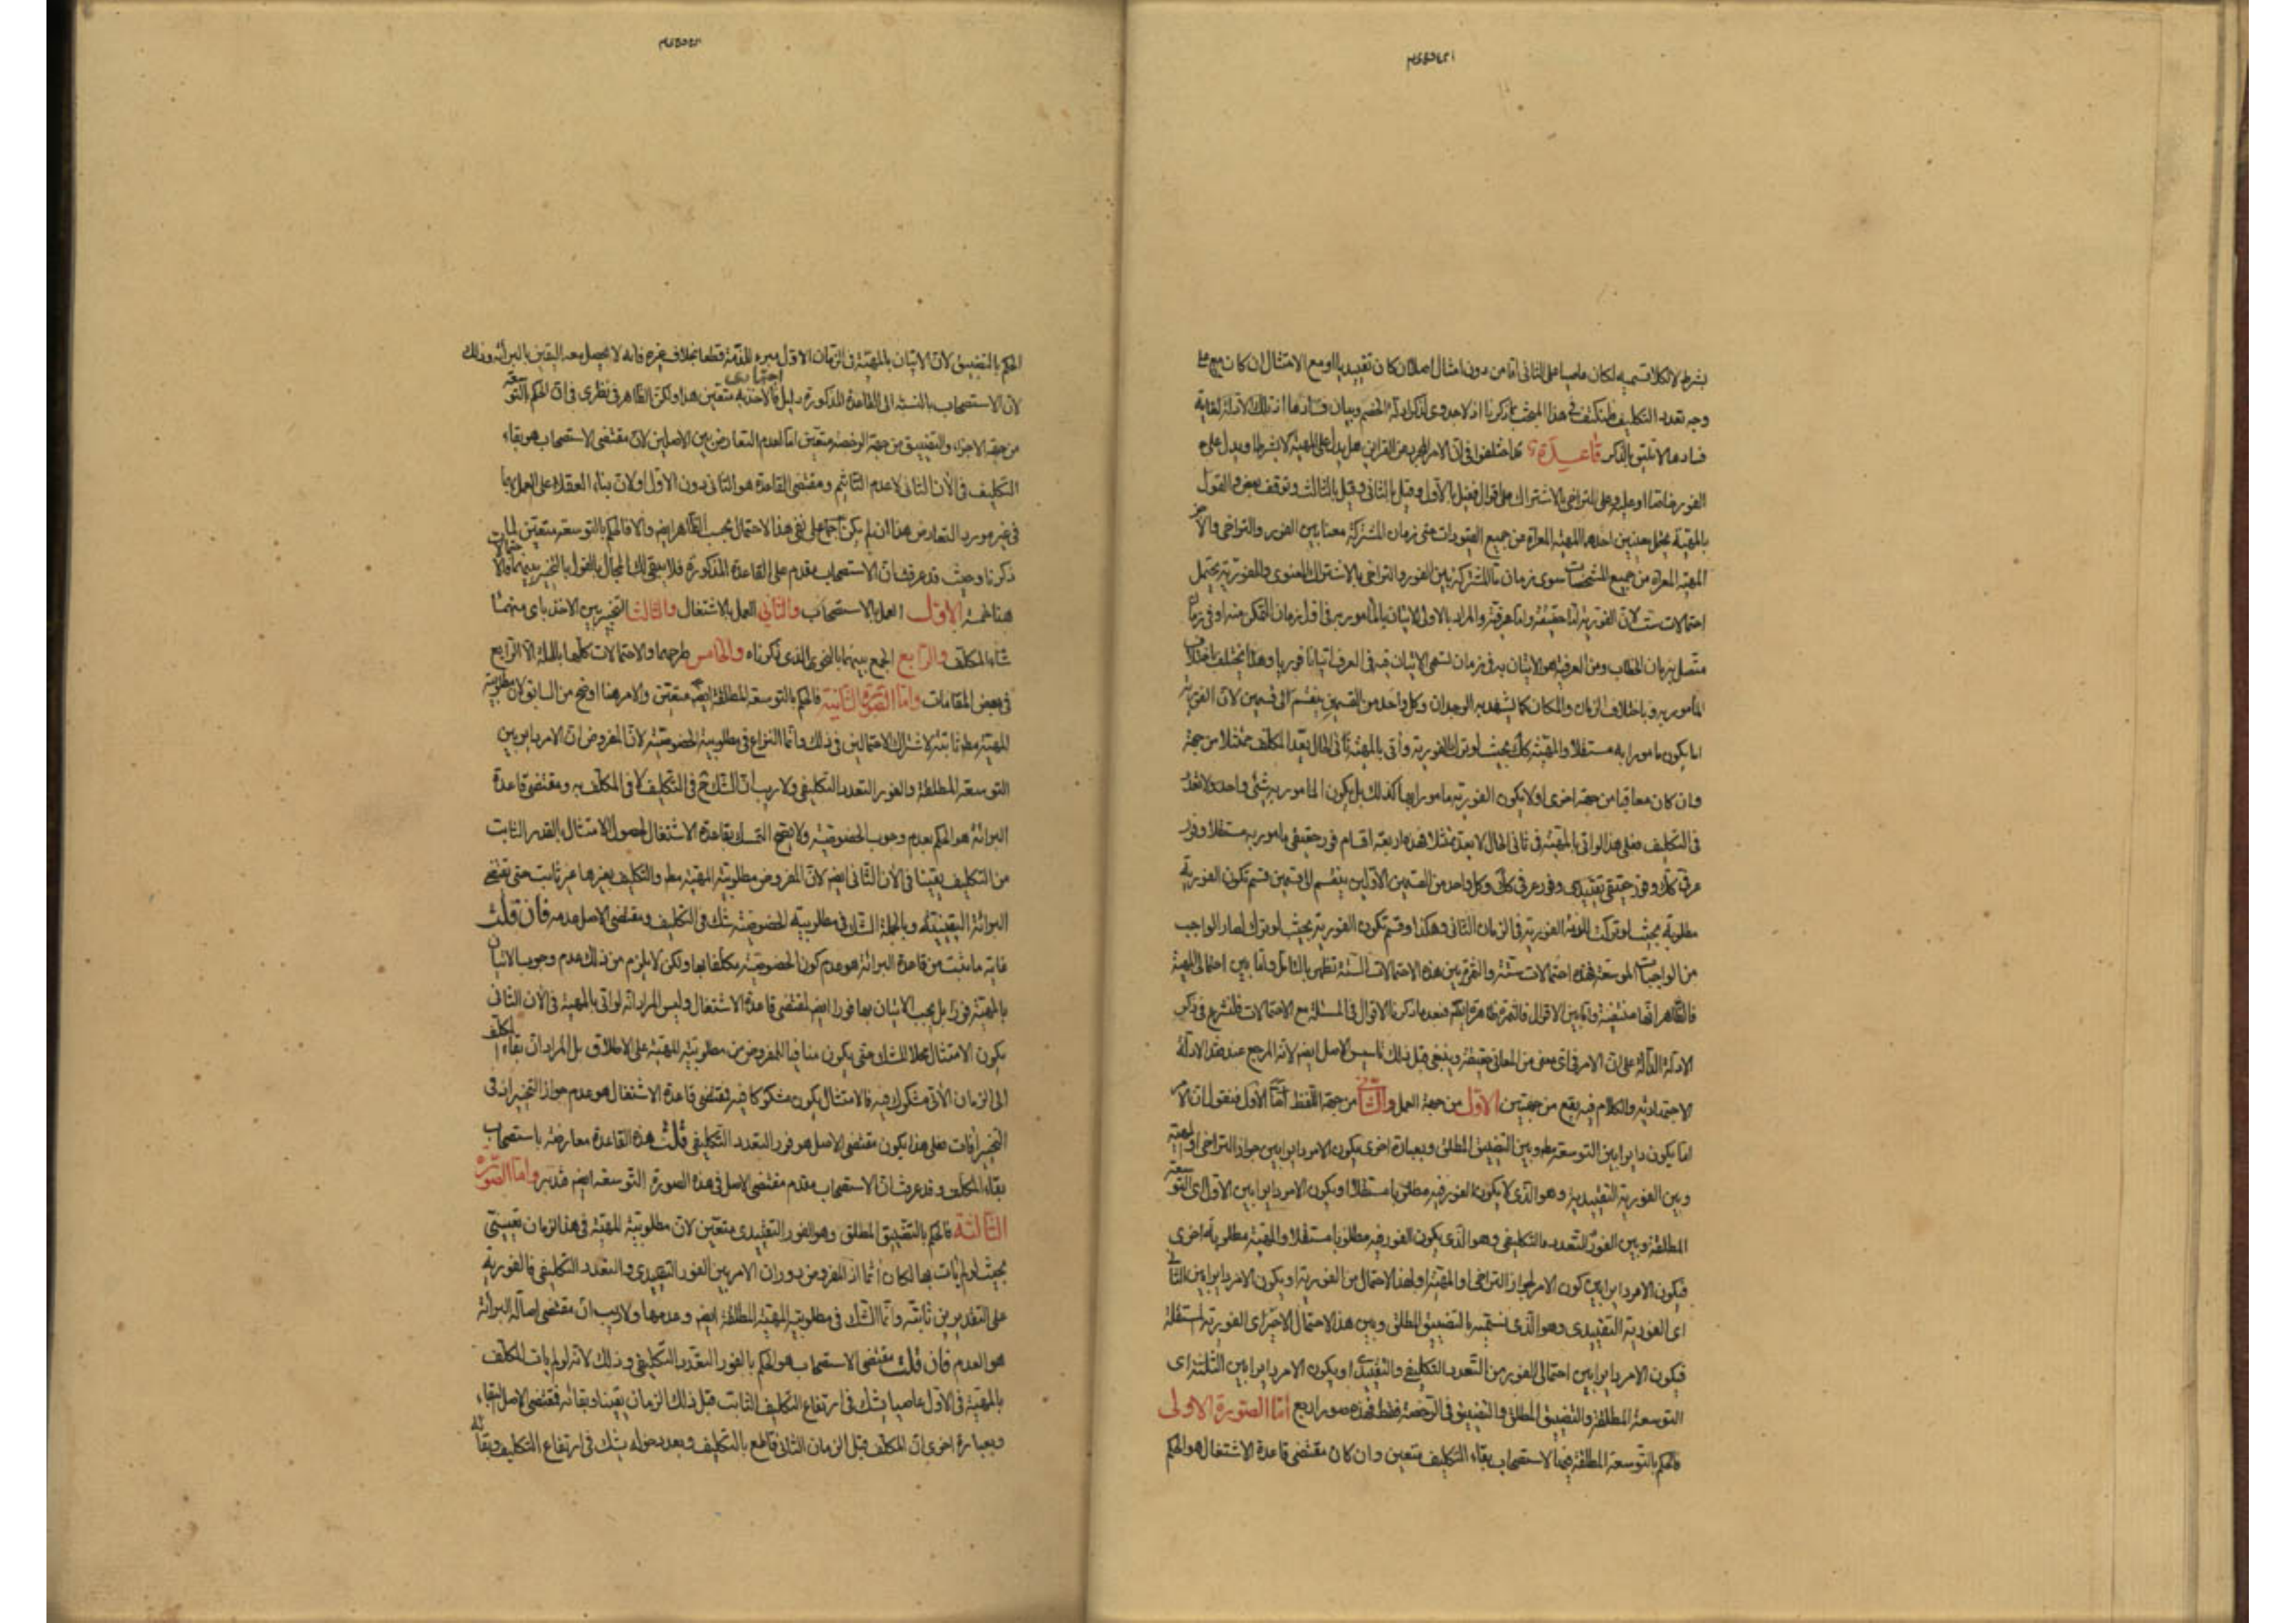 بشرط لا بكلا قسميه لكان عاصيا على الثانى اما من دون امتثال اصلا ان كان تقييديا او مع الامتثال ان كان مع
وجه تعدد التكليف فلنكتف فى هذا المبحث بما ذكرنا اذ لا جدوى لذكر ادلة الخصم وبيان فسادها اذ تلك الادلة لغاية
فسادها لا تليق بالذكر قاعدة اختلفوا فى ان الامر المجرد عن القراين هل يدل على المهية لا بشرط او يدل على
الفور خاصة او عليه وعلى التراخى بالاشتراك على اقوال فقيل بالاول وقيل بالثانى وقيل بالثالث وتوقف بعض والقول
بالمهية يحتمل معنيين احدهما المهية المعراة من جميع القيودات حتى زمان المشتركة معنا بين الفور والتراخى والاخر
المهية المعراة من جميع المشخصات سوى زمان ما المشتركة بين الفور والتراخى بالاشتراك المعنوى والفورية يحتمل
احتمالات ست لان الفورية اما حقيقية واما عرفية والمراد بالاولى الاتيان بالمأمور به فى اول زمان التمكن منه او فى زمان
متصل بزمان الخطاب ومن العرفية هو الاتيان به فى زمان يسمى الاتيان فيه فى العرف اتيانا فوريا وهذا يختلف باختلاف
المأمور به وباختلاف الزمان والمكان كما يشهد به الوجدان وكل واحد من القسمين ينقسم الى قسمين لان الفورية
اما يكون مامورا به مستقلا والمهية كك بحيث لو ترك الفورية وأتى بالمهية ثانى الحال يعد المكلف ممتثلا من جهة
وان كان معاقبا من جهة اخرى او لا يكون الفورية مامورا بها كذلك بل يكون المامور به شئ واحد ولا تعدد
فى التكليف فعلى هذا لو اتى بالمهية فى ثانى الحال لا يعد ممتثلا فهذه اربعة اقسام فور حقيقى مامور به مستقلا وفور
عرفى كك وفور حقيقى تقييدى وفور عرفى كك وكل واحد من القسمين الاولين ينقسم الى قسمين قسم تكون الفورية
مطلوبة بحيث لو تركت الفورية فى الزمان الثانى وهكذا وقسم تكون الفورية بحيث لو ترك لصار الواجب
من الواجبات الموسعة فهذه احتمالات ستة والفرق بين هذه الاحتمالات الستة تظهر بالتأمل واما بين احتمالى المهية
فالظاهر انها منتفية واما بين الاقوال فالثمرة ظاهرة فبعد ما ذكرنا الاقوال فى المسئلة مع الاحتمالات فلنشرع فى ذكر
الادلة الدالة على ان الامر فى اى معنى من المعانى حقيقة وينبغى قبل ذلك تاسيس الاصل ايضا لانه المرجع عند فقد الادلة
الاجتهادية والكلام فيه يقع من جهتين الاول من جهة العمل والثانى من جهة اللفظ اما الاول فنقول ان الامر
اما يكون دايرا بين التوسعة مط وبين التضييق المطلق وبعبارة اخرى يكون الامر دايرا بين جواز التراخى او المهية
وبين الفورية التقييدية وهو الذى لا يكون الفور فيه مطلوبا مستقلا او يكون الامر دايرا بين الاول اى التوسعة
المطلقة وبين الفور المتعدد بالتكليفى وهو الذى يكون الفور فيه مطلوبا مستقلا والمهية مطلوبة اخرى
فيكون الامر دايرا بين كون الامر لجواز التراخى او المهية او لهذا الاحتمال من الفورية او يكون الامر دايرا بين الثانى
اى الفورية التقييدى وهو الذى نسميه بالتضييق المطلق وبين هذا الاحتمال الاخر اى الفورية المستقلة
فيكون الامر دايرا بين احتمالى الفور من التعدد التكليفى والتقييدى او يكون الامر دايرا بين الثلثة اى
التوسعة المطلقة والتضييق المطلق والتضييق فى الرخصة فقط فهذه صور اربع اما الصورة الاولى
فالحكم بالتوسعة المطلقة فيها لاستصحاب بقاء التكليف متعين وان كان مقتضى قاعدة الاشتغال هو الحكم
الحكم بالتضييق لان الاتيان بالمهية فى الزمان الاول مبرء للذمة قطعا بخلاف غيره فانه لا يحصل معه اليقين بالبرائة وذلك
لان الاستصحاب بالنسبة الى القاعدة المذكورة دليل اجتهادى فالاخذ به متعين هذا ولكن الظاهر فى نظرى فى ان الحكم بالتوسعة
من جهة الاجزاء والتضييق من جهة الرخصة متعين اما لعدم التعارض بين الاصلين لان مقتضى الاستصحاب هو بقاء
التكليف فى الآن الثانى لا عدم التاثيم ومقتضى القاعدة هو الثانى دون الاول او لان بناء العقلاء على العمل بها
فى غير مورد التعارض هذا ان لم يكن اجماع على نفى هذا الاحتمال بحسب الظاهر ايضا والا فالحكم بالتوسعة متعين لما
ذكرنا وحيث قد عرفت ان الاستصحاب مقدم على القاعدة المذكورة فلا يبقى لك المجال بالقول بالتخيير بينهما فالاحتمالات
هنا خمسة الاول العمل بالاستصحاب والثانى العمل بالاشتغال والثالث التخيير بين الاخذ باى منهما
شاء المكلف والرابع الجمع بينهما بالنحو الذى ذكرناه والخامس طرحهما والاحتمالات كلها باطلة الا الرابع
فى بعض المقامات واما الصورة الثانية فالحكم بالتوسعة المطلقة ايضا متعين والامر هنا اوضح من السابق لان مطلوبية
المهية مط ثابتة لاشتراك الاحتمالين فى ذلك وانما النزاع فى مطلوبية الخصوصية لان المفروض ان الامر دايرا بين
التوسعة المطلقة والفور المتعدد التكليفى ولا ريب ان الشك ح فى التكليف لا فى المكلف به ومقتضى قاعدة
البرائة هو الحكم بعدم وجوب الخصوصية ولا يصح التمسك بقاعدة الاشتغال لحصول الامتثال بالقدر الثابت
من التكليف يقينا فى الآن الثانى ايضا لان المفروض مطلوبية المهية مط والتكليف بغيرها غير ثابت حتى يقتضى
البرائة اليقينية وبالجملة الشك فى مطلوبية الخصوصية شك فى التكليف ومقتضى الاصل عدمه فان قلت
غاية ما يثبت من قاعدة البرائة هو عدم كون الخصوصية مكلفا بها ولكن لا يلزم من ذلك عدم وجوب الاتيان
بالمهية فورا بل يجب الاتيان بها فورا ايضا لمقتضى قاعدة الاشتغال وليس المراد انه لو اتى بالمهية فى الآن الثانى
يكون الامتثال محلا للشك حتى يكون منافيا للمفروض من مطلوبية المهية على الاطلاق بل المراد ان بقاء المكلف
الى الزمان الآتى مشكوك فيه فالامتثال يكون مشكوكا فيه فمقتضى قاعدة الاشتغال هو عدم جواز التخيير فى
التخيير آفات فعلى هذا يكون مقتضى الاصل هو فور المتعدد التكليفى قلت هذه القاعدة معارضة باستصحاب
بقاء المكلف وقد عرفت ان الاستصحاب مقدم مقتضى الاصل فى هذه الصورة التوسعة ايضا فتدبر واما الصورة
الثالثة فالحكم بالتضييق المطلق وهو الفور التقييدى متعين لان مطلوبية المهية فى هذا الزمان يقينى
بحيث لو لم يأت بها لكان آثما اذ المفروض دوران الامر بين الفور التقييدى والمتعدد التكليفى فالفورية
على التقديرين ثابتة وانما الشك فى مطلوبية المهية المطلقة ايضا وعدمها ولا ريب ان مقتضى اصالة البرائة
هو العدم فان قلت مقتضى الاستصحاب هو الحكم بالفور المتعدد التكليفى وذلك لانه لو لم يأت المكلف
بالمهية فى الاول عاصيا يشك فى ارتفاع التكليف الثابت قبل ذلك الزمان يقينا وبقائه فمقتضى الاصل البقاء
وبعبارة اخرى ان المكلف قبل الزمان الثانى قاطع بالتكليف وبعد دخوله يشك فى ارتفاع التكليف وبقائه